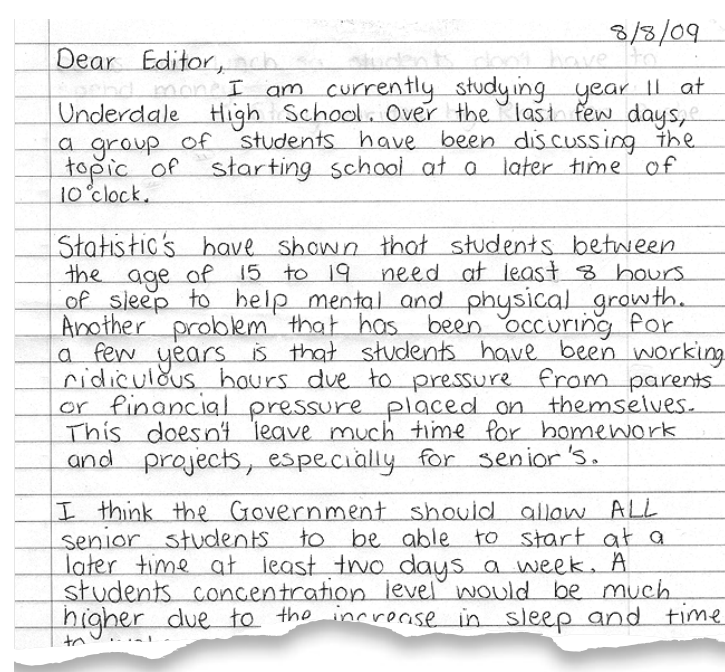 8/8/09
Dear Editor,
I am currently studying year 11 at
Underdale High School. Over the last few days,
a group of students have been discussing the
topic of starting school at a later time of
10 o'clock.
Statistic's have shown that students between
the age of 15 to 19 need at least 8 hours
of sleep to help mental and physical growth.
Another problem that has been occuring for
a few years is that students have been working
ridiculous hours due to pressure from parents
or financial pressure placed on themselves.
This doesn't leave much time for homework
and projects, especially for senior's.
I think the Government should allow ALL
senior students to be able to start at a
later time at least two days a week. A
students concentration level would be much
higher due to the increase in sleep and time
to